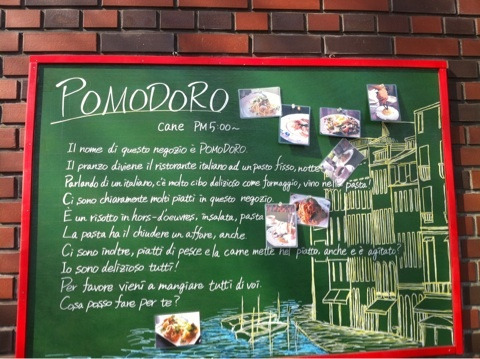 POMODORO
cane PM5:00~
Il nome di questo negozio è POMODORO.
Il pranzo diviene il ristorante italiano ad un pasto fisso, notte.
Parlando di un italiano, c'è molto cibo delizioso come formaggio, vino nella pasta
Ci sono chiaramente molti piatti in questo negozio.
È un risotto in hors-d'oeuvres, insalata, pasta
La pasta ha il chiudere un affare, anche.
Ci sono inoltre, piatti di pesce e la carne mette nel piatto, anche e è agitato?
Io sono delizioso tutti!
Per favore vieni a mangiare tutti di voi.
Cosa posso fare per te?